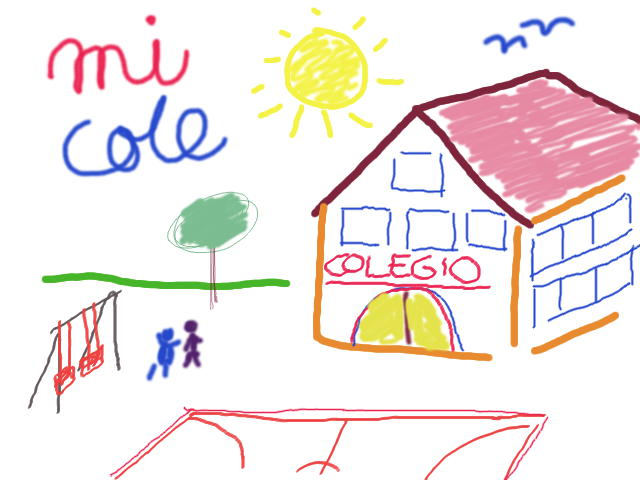 mi
cole
COLEGIO